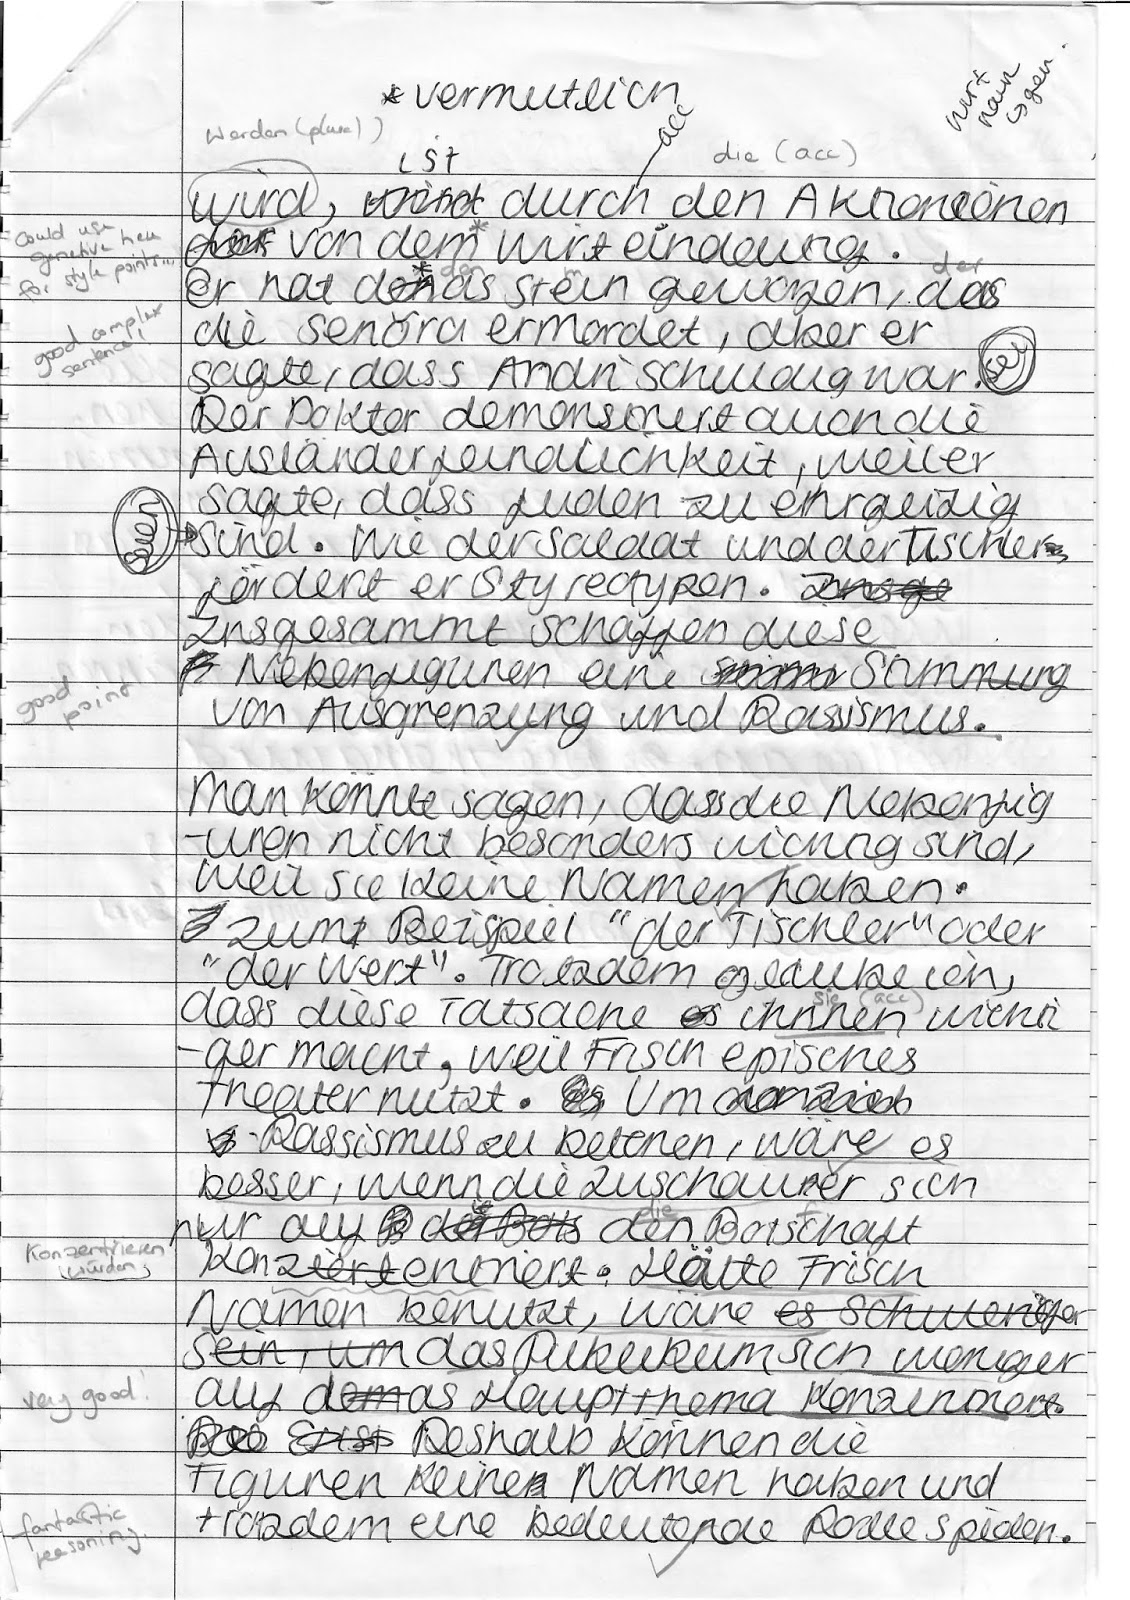 *vermutlich
wirt
acc
werden (plural)
ist
die (acc)
wird, durch den Aktionenen
von dem* wirt eindeutig.
could use
genitive here
for style points...
den
der
er hat das stein geworfen, das
good complex
sentence!
die senora ermordet, aber er
sagte, dass Andri schuldig war.
sei
Der Doktor demonstriert auch die
Ausländerfeindlichkeit, weil er
sagte, dass Juden zu ehrgeizig
seien
sind. Wie der Soldat und der Tischler
fördert er Styreotypen.
Insgesammt schaffen diese
Nebenfiguren eine Stimmung
good
point
von Ausgrenzung und Rassismus.
Man könnte sagen, dass die Nebenfig
-uren nicht besonders wichtig sind,
weil sie keine Namen haben.
zum Beispiel "der Tischler" oder
"der Wert". Trotzdem glaube ich,
sie (acc)
dass diese Tatsache ihnen wichti
-ger macht, weil Frisch episches
Theater nutzt. Um
Rassismus zu betonen, wäre es
besser, wenn die Zuschauer sich
die
nur auf den Botschaft
konzentrieren
würden
konzentriert. Hätte Frisch
Namen benutzt, wäre
das Pubukum sich weniger
very good!
auf das Hauptthema konzentriert.
Deshalb können die
Figuren keine Namen haben und
fantastic
reasoning.
trotzdem eine bedeutende Rolle spielen.